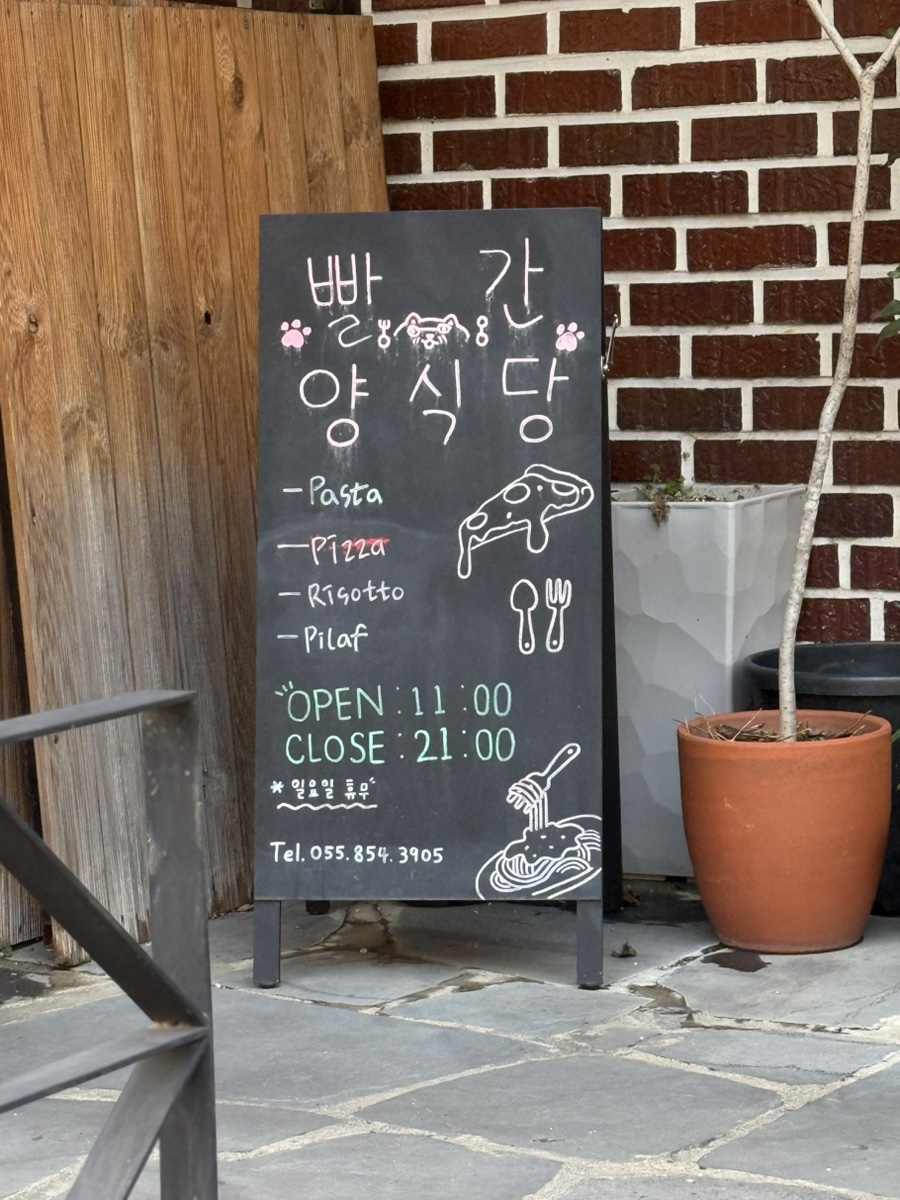 빨간
양식당
-Pasta
-Pizza
-Risotto
-Pilaf
OPEN : 11 : 00
CLOSE : 21 : 00
* 일요일 휴무
Tel. 055. 854. 3905